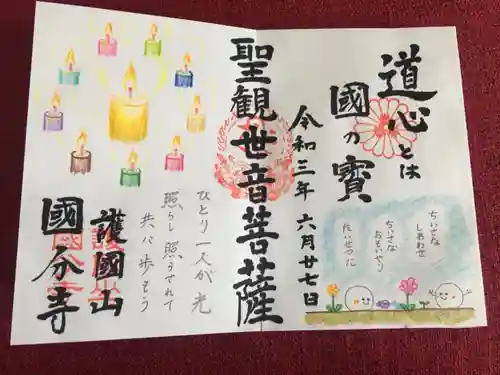 道心とは
國の寳
令和三年 六月廿七日
ちいさな
しあわせ
ちいさな
おもいやり
たいせつに
聖観世音菩薩
ひとり一人が光
照らし照らされて
共に歩もう
護國山
國分寺